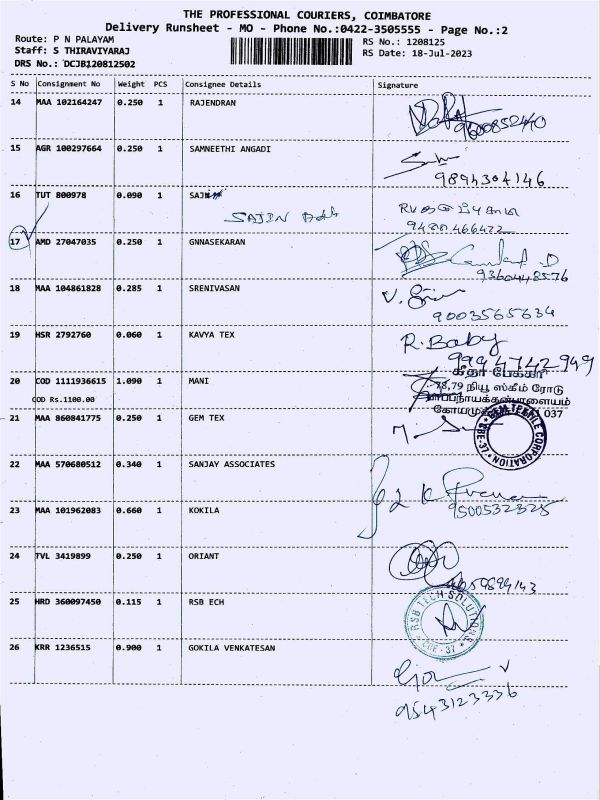 THE PROFESSIONAL COURIERS, COIMBATORE
Delivery Runsheet - MO - Phone No.:0422-3505555 - Page No.:2
Route: P N PALAYAM
RS No.: 1208125
Staff: S THIRAVIYARAJ
RS Date: 18-Jul-2023
DRS No.: DCJB120812502
S No Consignment No Weight PCS Consignee Details Signature
14 MAA 102164247 0.250 1 RAJENDRAN
15 AGR 100297664 0.250 1 SAMNEETHI ANGADI
9894304146
16 TUT 800978 0.090 1
SAJIN
17 AMD 27047035 0.250 1 GNNASEKARAN
9360448576
18 MAA 104861828 0.285 1 SRENIVASAN
9003565634
19 HSR 2792760 0.060 1 KAVYA TEX
R. Baby
9994742949
கீதா பேக்கரி
20 COD 1111936615 1.090 1 MANI
78,79 நியூ ஸ்கீம் ரோடு
COD Rs.1100.00
21 MAA 860841775 0.250 1 GEM TEX
037
CORPORATION
22 MAA 570680512 0.340 1 SANJAY ASSOCIATES
23 MAA 101962083 0.660 1 KOKILA
9500532325
24 TVL 3419899 0.250 1 ORIANT
25 HRD 360097450 0.115 1 RSB ECH
RSB TECH SOLUTIONS
CBE - 37
26 KRR 1236515 0.900 1 GOKILA VENKATESAN
9543123336